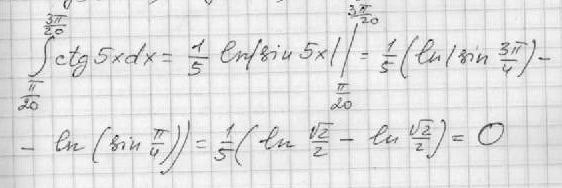 ∫_{π/20}^{3π/20} ctg 5x dx = 1/5 ln|sin 5x| |_{π/20}^{3π/20} = 1/5 (ln|sin 3π/4) -
- ln (sin π/4)) = 1/5 (ln √2/2 - ln √2/2) = 0